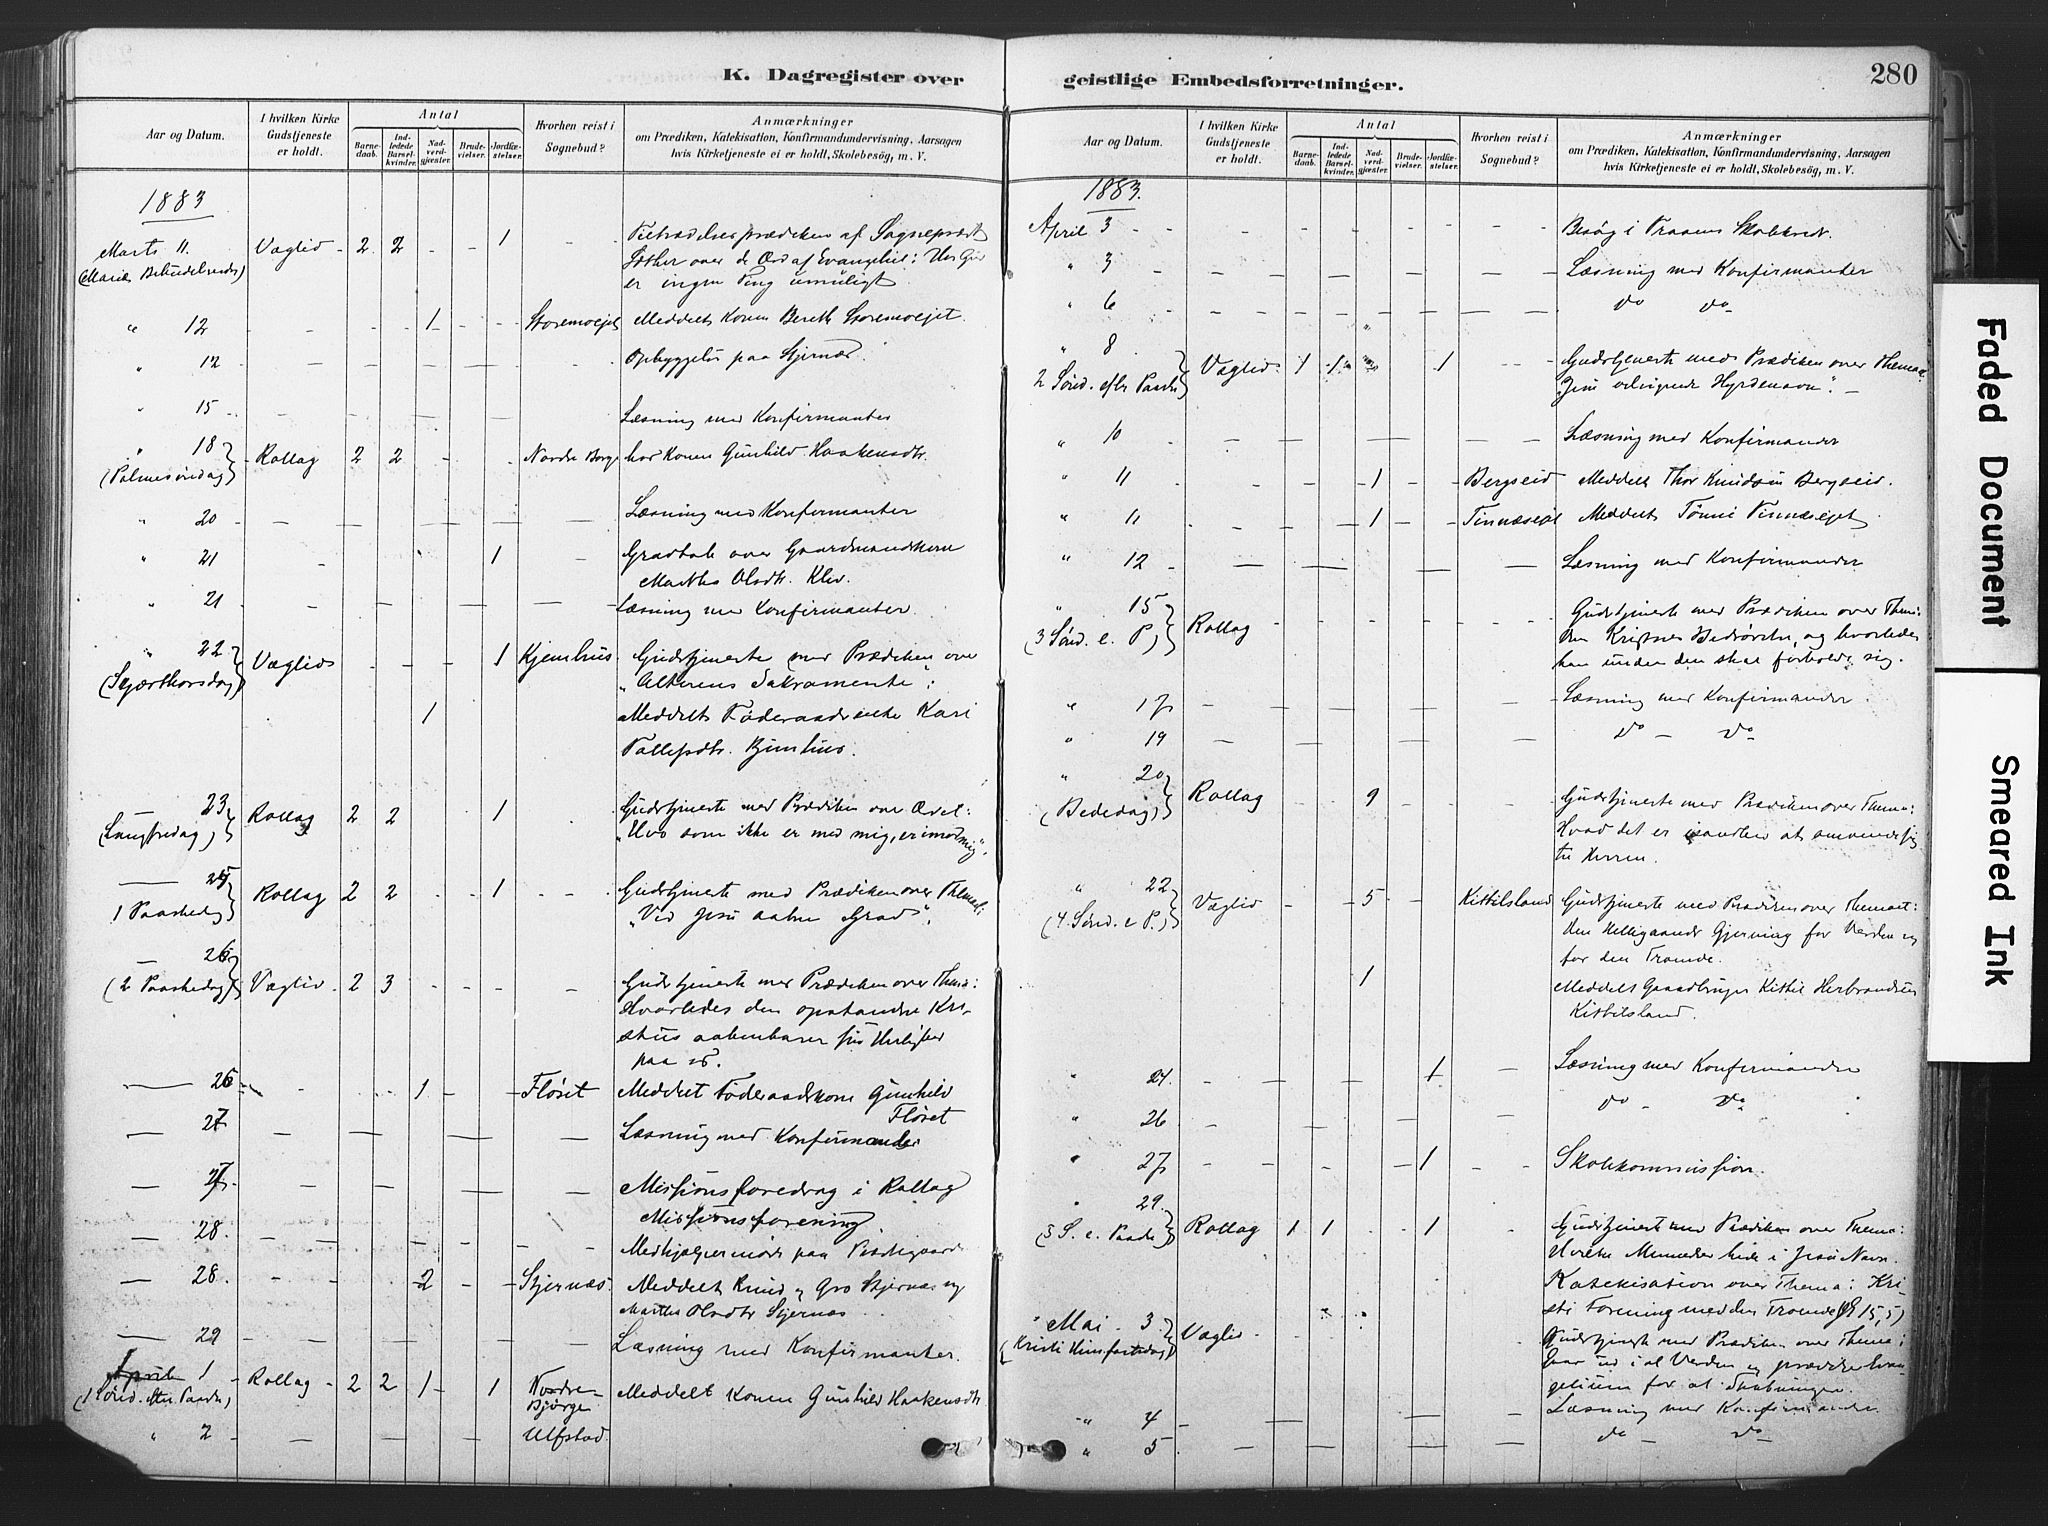 K. Dagregister over
Aar og Datum.
I hvilken Kirke Gudstjeneste er holdt.
Antal
Barnedaab.
Indledede Barselkvinder.
Nadverdgjæster.
Brudevielser.
Jordfæstelser.
Hvorhen reist i Sognebud?
Anmærkninger
om Prædiken, Katekisation, Konfirmandundervisning, Aarsagen
hvis Kirketjeneste ei er holdt, Skolebesøg, m. V.
1883
Marts 11. Væglid 2 2 1 Tiltrædelsesprædiken af Sognepræst
(Mariæ Bebudelsesdag) over de Ord af Evangeliet: Hos Gud
er ingen Ting umuligt
" 12 1 Storemoejet Meddelt Konen Bereth Storemoejet.
" 12 Opbyggelse paa Stjernæs.
" 15 Læsning med Konfirmanter
" 18 Rollag 2 2 Nordre Borge hos Konen Gunhild Haakensdtr.
(Palmesøndag)
" 20 Læsning med Konfirmanter
" 21 1 Gravtale over Gaardmandskone
Marthe Olsdtr. Kliv.
" 21 Læsning med Konfirmanter.
" 22 Væglid 1 Kjemhus. Gudstjeneste med Prædiken over
(Skjærthorsdag) "Alterens Sakramente":
1 Meddelt Føderaadsenke Kari
Tollefsdtr. Kjemhus.
23 Rollag 2 2 1 Gudstjeneste med Prædiken over Ordet:
(Langfredag) "Hvo som ikke er med mig, er imod mig".
25 Rollag 2 2 1 Gudstjeneste med Prædiken over Themaet:
1 Paaskedag "Ved Jesu aabne Grav".
26 Væglid 2 3 Gudstjeneste med Prædiken over Thema:
(2 Paaskedag) Hvorledes den opstandne Kri-
stus aabenbarer sin Herlighed
paa os.
26 1 Fløset Meddelt Føderaadskone Gunhild
Fløset
27 Læsning med Konfirmander
27. Missionsforedrag i Rollag
Missionsforening.
28. Medhjælpermøde paa Præstegaarden
28. 2 Stjernæs. Meddelt Knud og Gro Stjernæs og
Marthe Olsdtr Stjernæs.
29 Læsning med Konfirmanter.
April 1 Rollag 2 2 1 1 Nordre Meddelt Konen Gunhild Haakensdtr
(1 Sønd. efter Paaske) Bjørge
" 2 Ulfstad.
geistlige Embedsforretninger.
280
Aar og Datum.
I hvilken Kirke Gudstjeneste er holdt.
Antal
Barnedaab.
Indledede Barselkvinder.
Nadverdgjæster.
Brudevielser.
Jordfæstelser.
Hvorhen reist i Sognebud?
Anmærkninger
om Prædiken, Katekisation, Konfirmandundervisning, Aarsagen
hvis Kirketjeneste ei er holdt, Skolebesøg, m. V.
1883.
April 3 Besøg i Traaens Skolekreds.
" 3 Læsning med Konfirmanter
" 6 do do
" 8 Væglid 1 1 1 Gudstjeneste med Prædiken over Themaet:
2 Sønd. efter Paaske "Jesu velsignede Hyrdenavn".
" 10 Læsning med Konfirmander
" 11 1 Bergseid Meddelt Thor Knudsen Bergseid.
" 11 1 Tinnæsejet Meddelt Tønne Tinnæsejet
" 12 Læsning med Konfirmander
" 15 Rollag Gudstjeneste med Prædiken over Thema:
(3 Sønd. e. P.) den Kristnes Bedrøvelse, og hvorledes
han under den skal forholde sig.
" 17 Læsning med Konfirmander.
" 19 do do
" 20 Rollag 9 Gudstjeneste med Prædiken over Thema:
(Bededag) Hvad det er at omvende sig
til Herren.
" 22 Væglid 5 Kittilsland Gudstjeneste med Prædiken over Themaet:
(4. Sønd. e P.) Den Helligaands Gjerning for Verden og
for den Troende.
1 Meddelt Gaardbruger Kittil Herbrandsen
Kittilsland.
" 24. 1 Læsning med Konfirmander
" 26 do do
" 27 1 Skolekommission.
" 29. Rollag 1 1 1 Gudstjeneste med Prædiken over Thema:
(5 S. e. Paaske) Mennesker bede i Jesu Navn.
Katekisation over Thema: Kri-
sti Forening med den Troende (15,5)
" Mai 3. Væglid Gudstjeneste med Prædiken over Thema:
(Kristi Himmelfartsdag) Gaar ud i al Verden og prædiker Evan-
gelium for al Skabningen.
" 4 Læsning med Konfirmander
" 5 do do
Faded Document
Smeared Ink